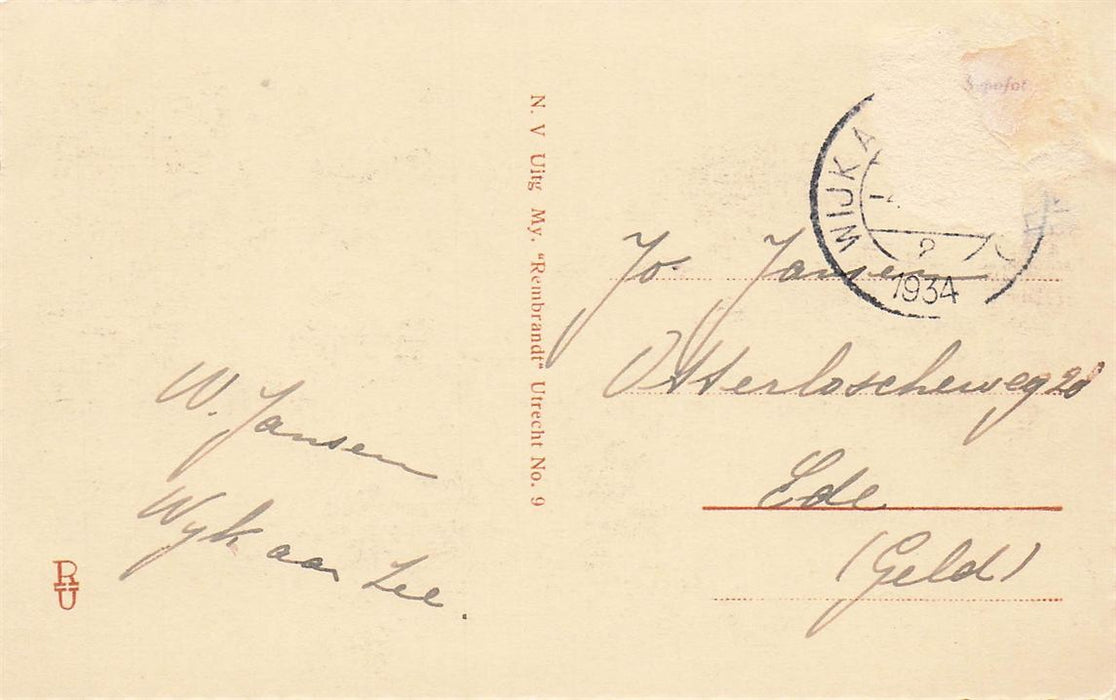 W. Jansen
Wyk aan Zee.
R
U
N. V Uitg My. "Rembrandt" Utrecht No. 9
WIJK A
2
1934
Jo. Jansen
Otterloscheweg 20
Ede
(Geld)